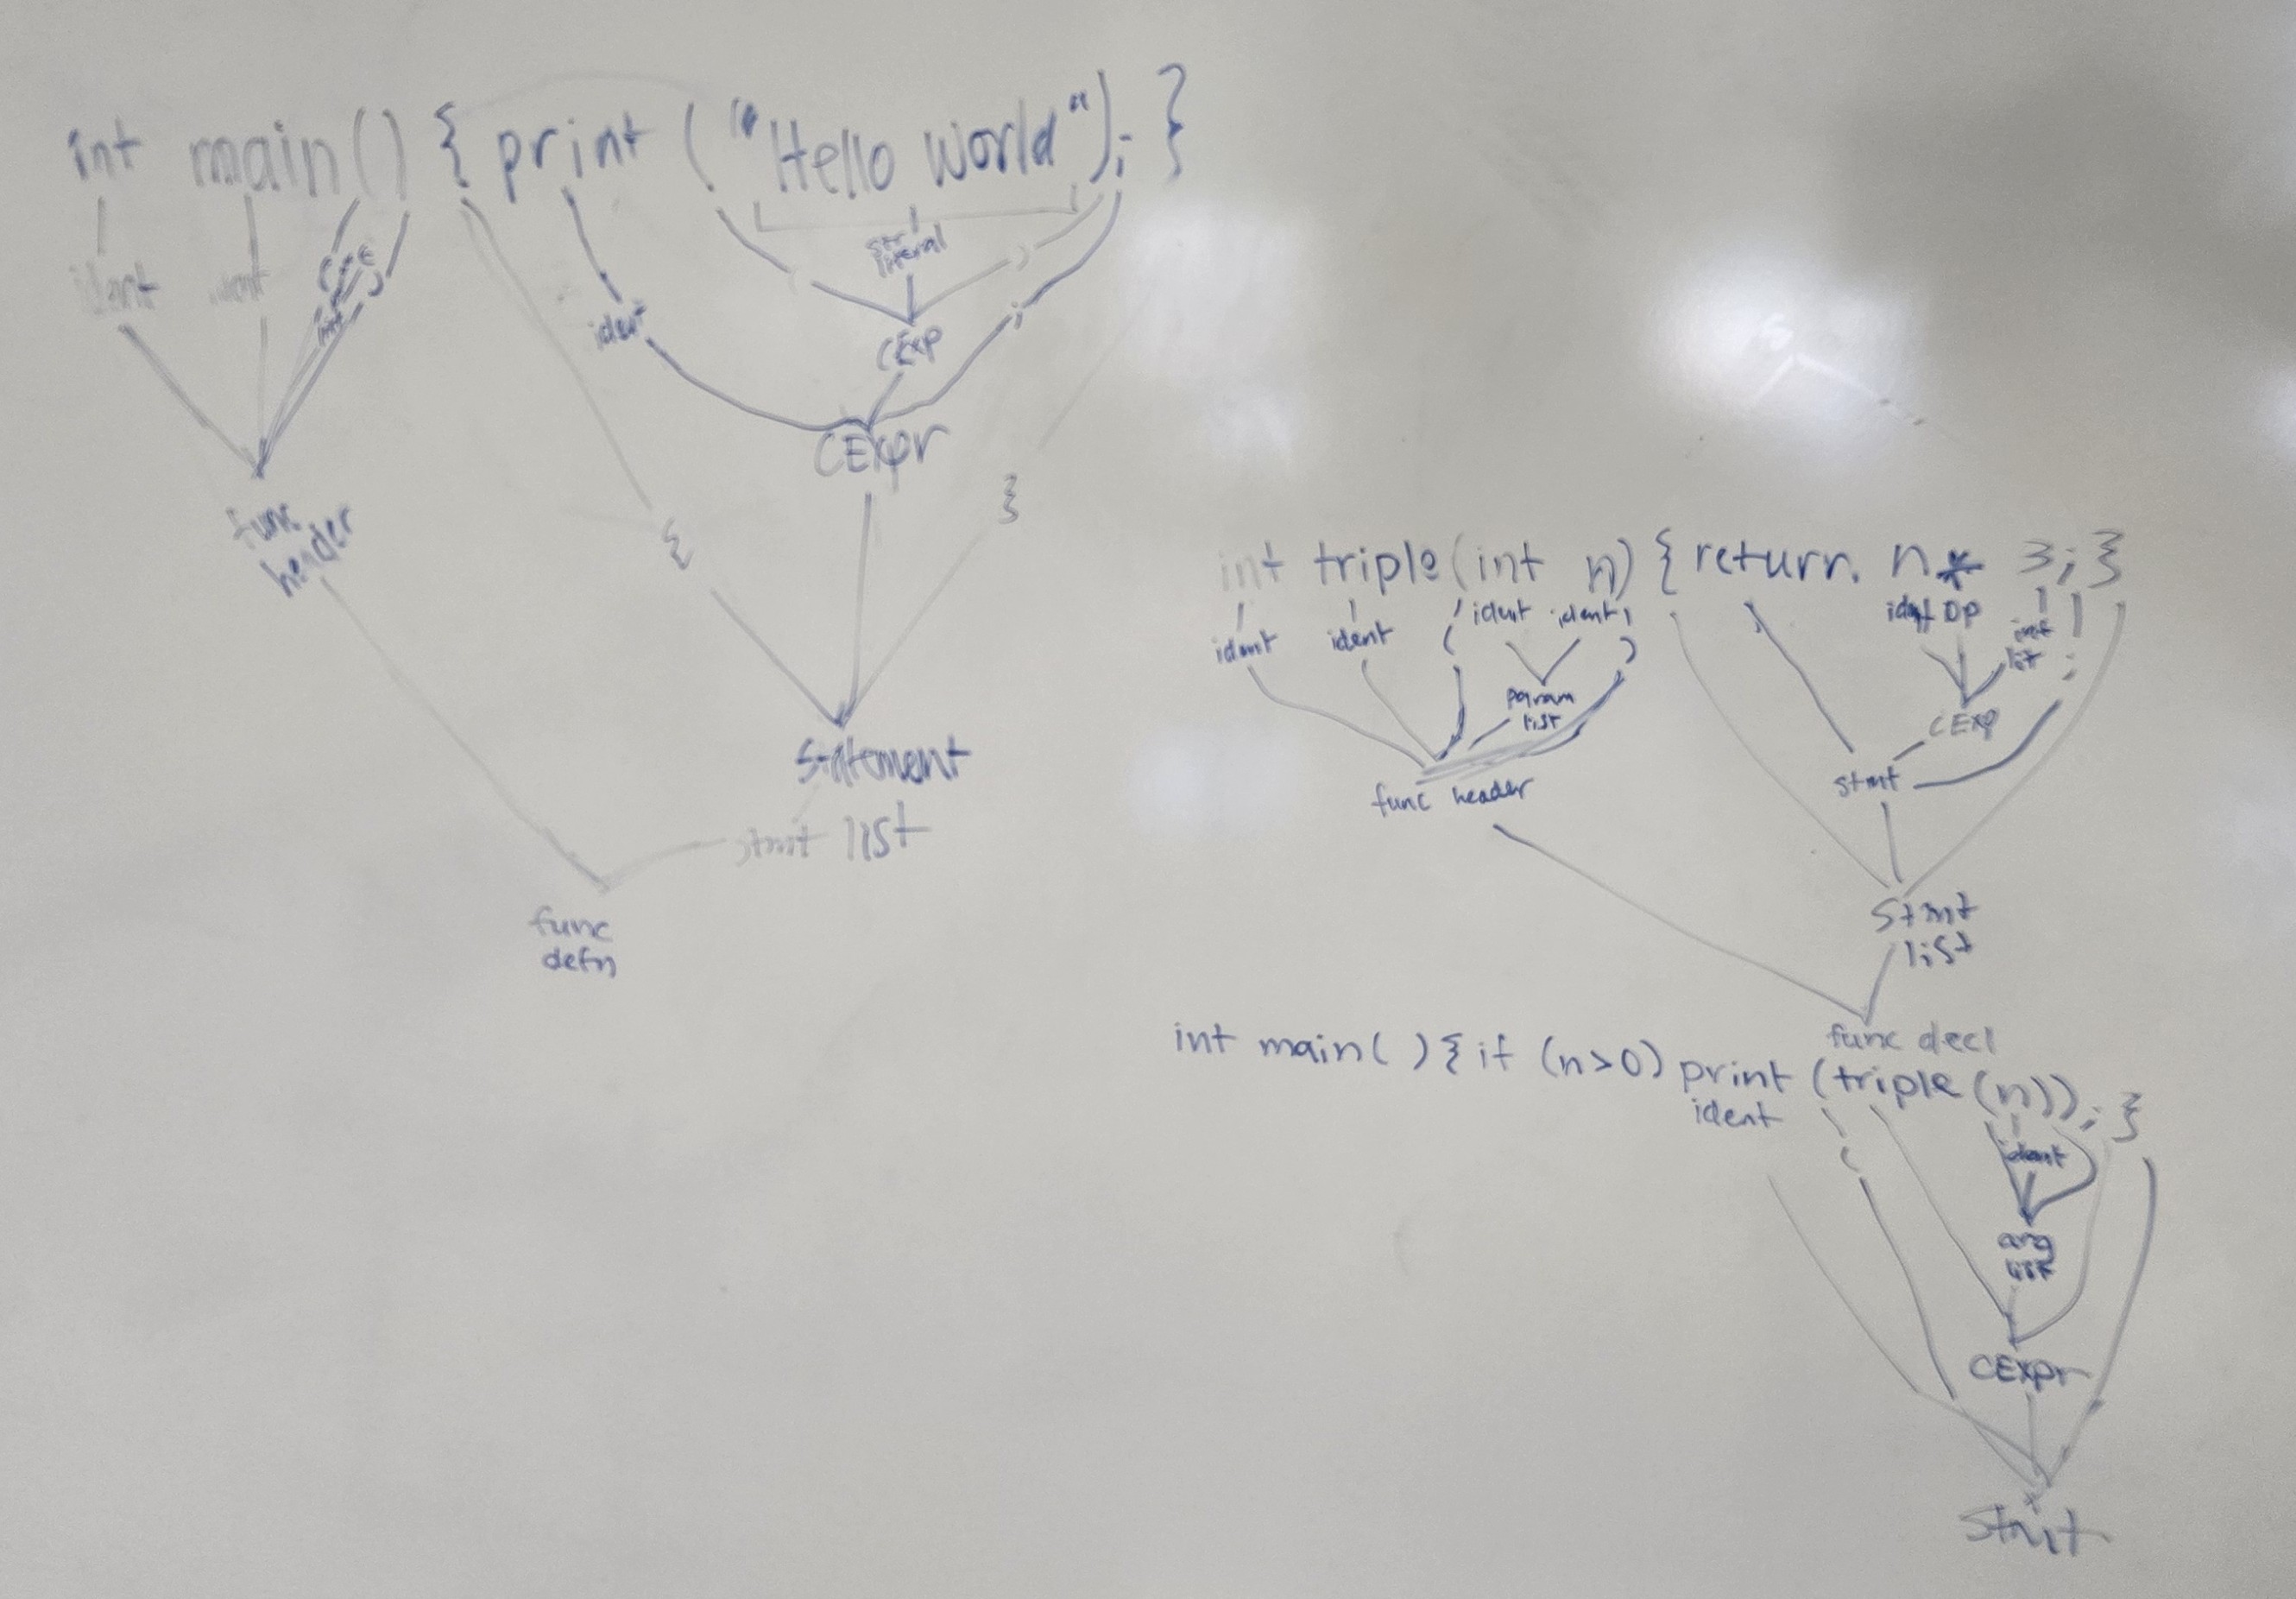 int main() { print ("Hello world"); }
ident
str literal
( )
ident
CExp
;
CExpr
func header
{ }
statement
stmt list
func defn
int triple(int n) { return n * 3; }
ident ident ( ident ident )
ident op int lit ;
param list
CExp
func header
stmt
stmt list
func decl
int main( ) { if (n>0) print (triple(n)); }
ident
(
ident
arg list
CExpr